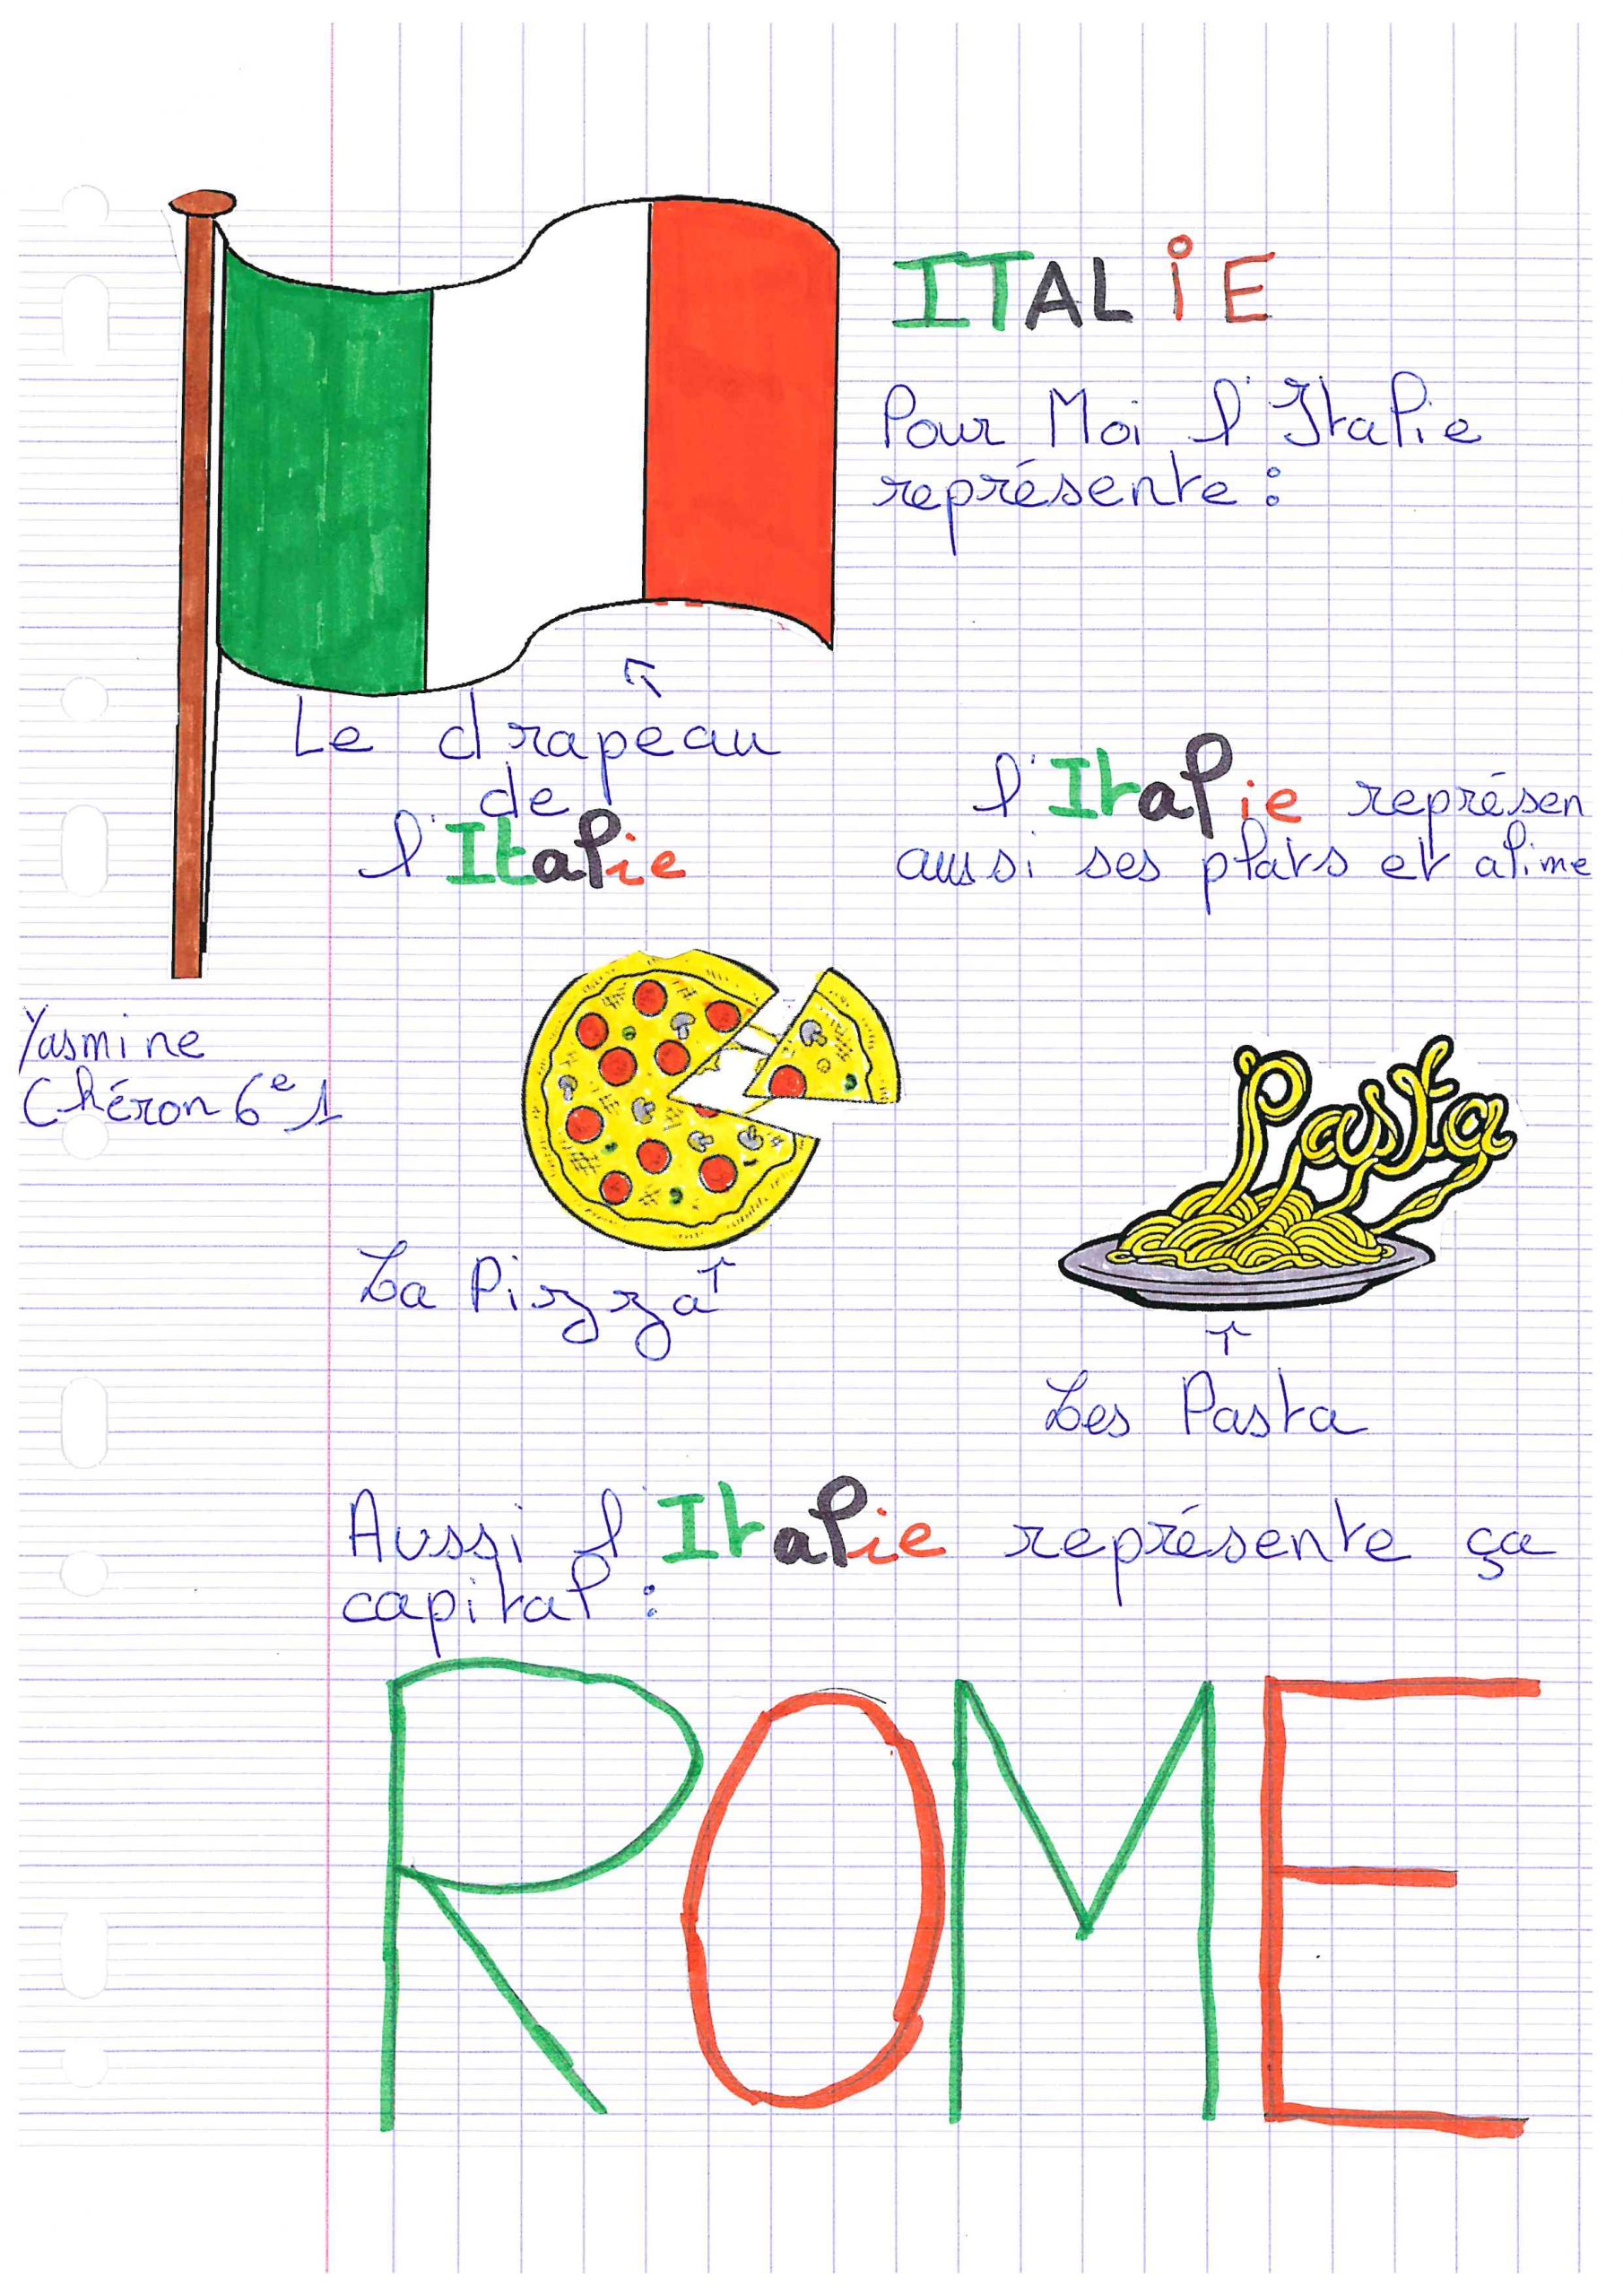 ITALiE
Pour Moi l'Italie
représente :
Le drapeau
de
l'Italie
l'Italie représen
aussi ses plats et alime
Yasmine
Chéron 6e1
Pasta
La Pizza
Les Pasta
Aussi l'Italie représente ça
capital :
ROME